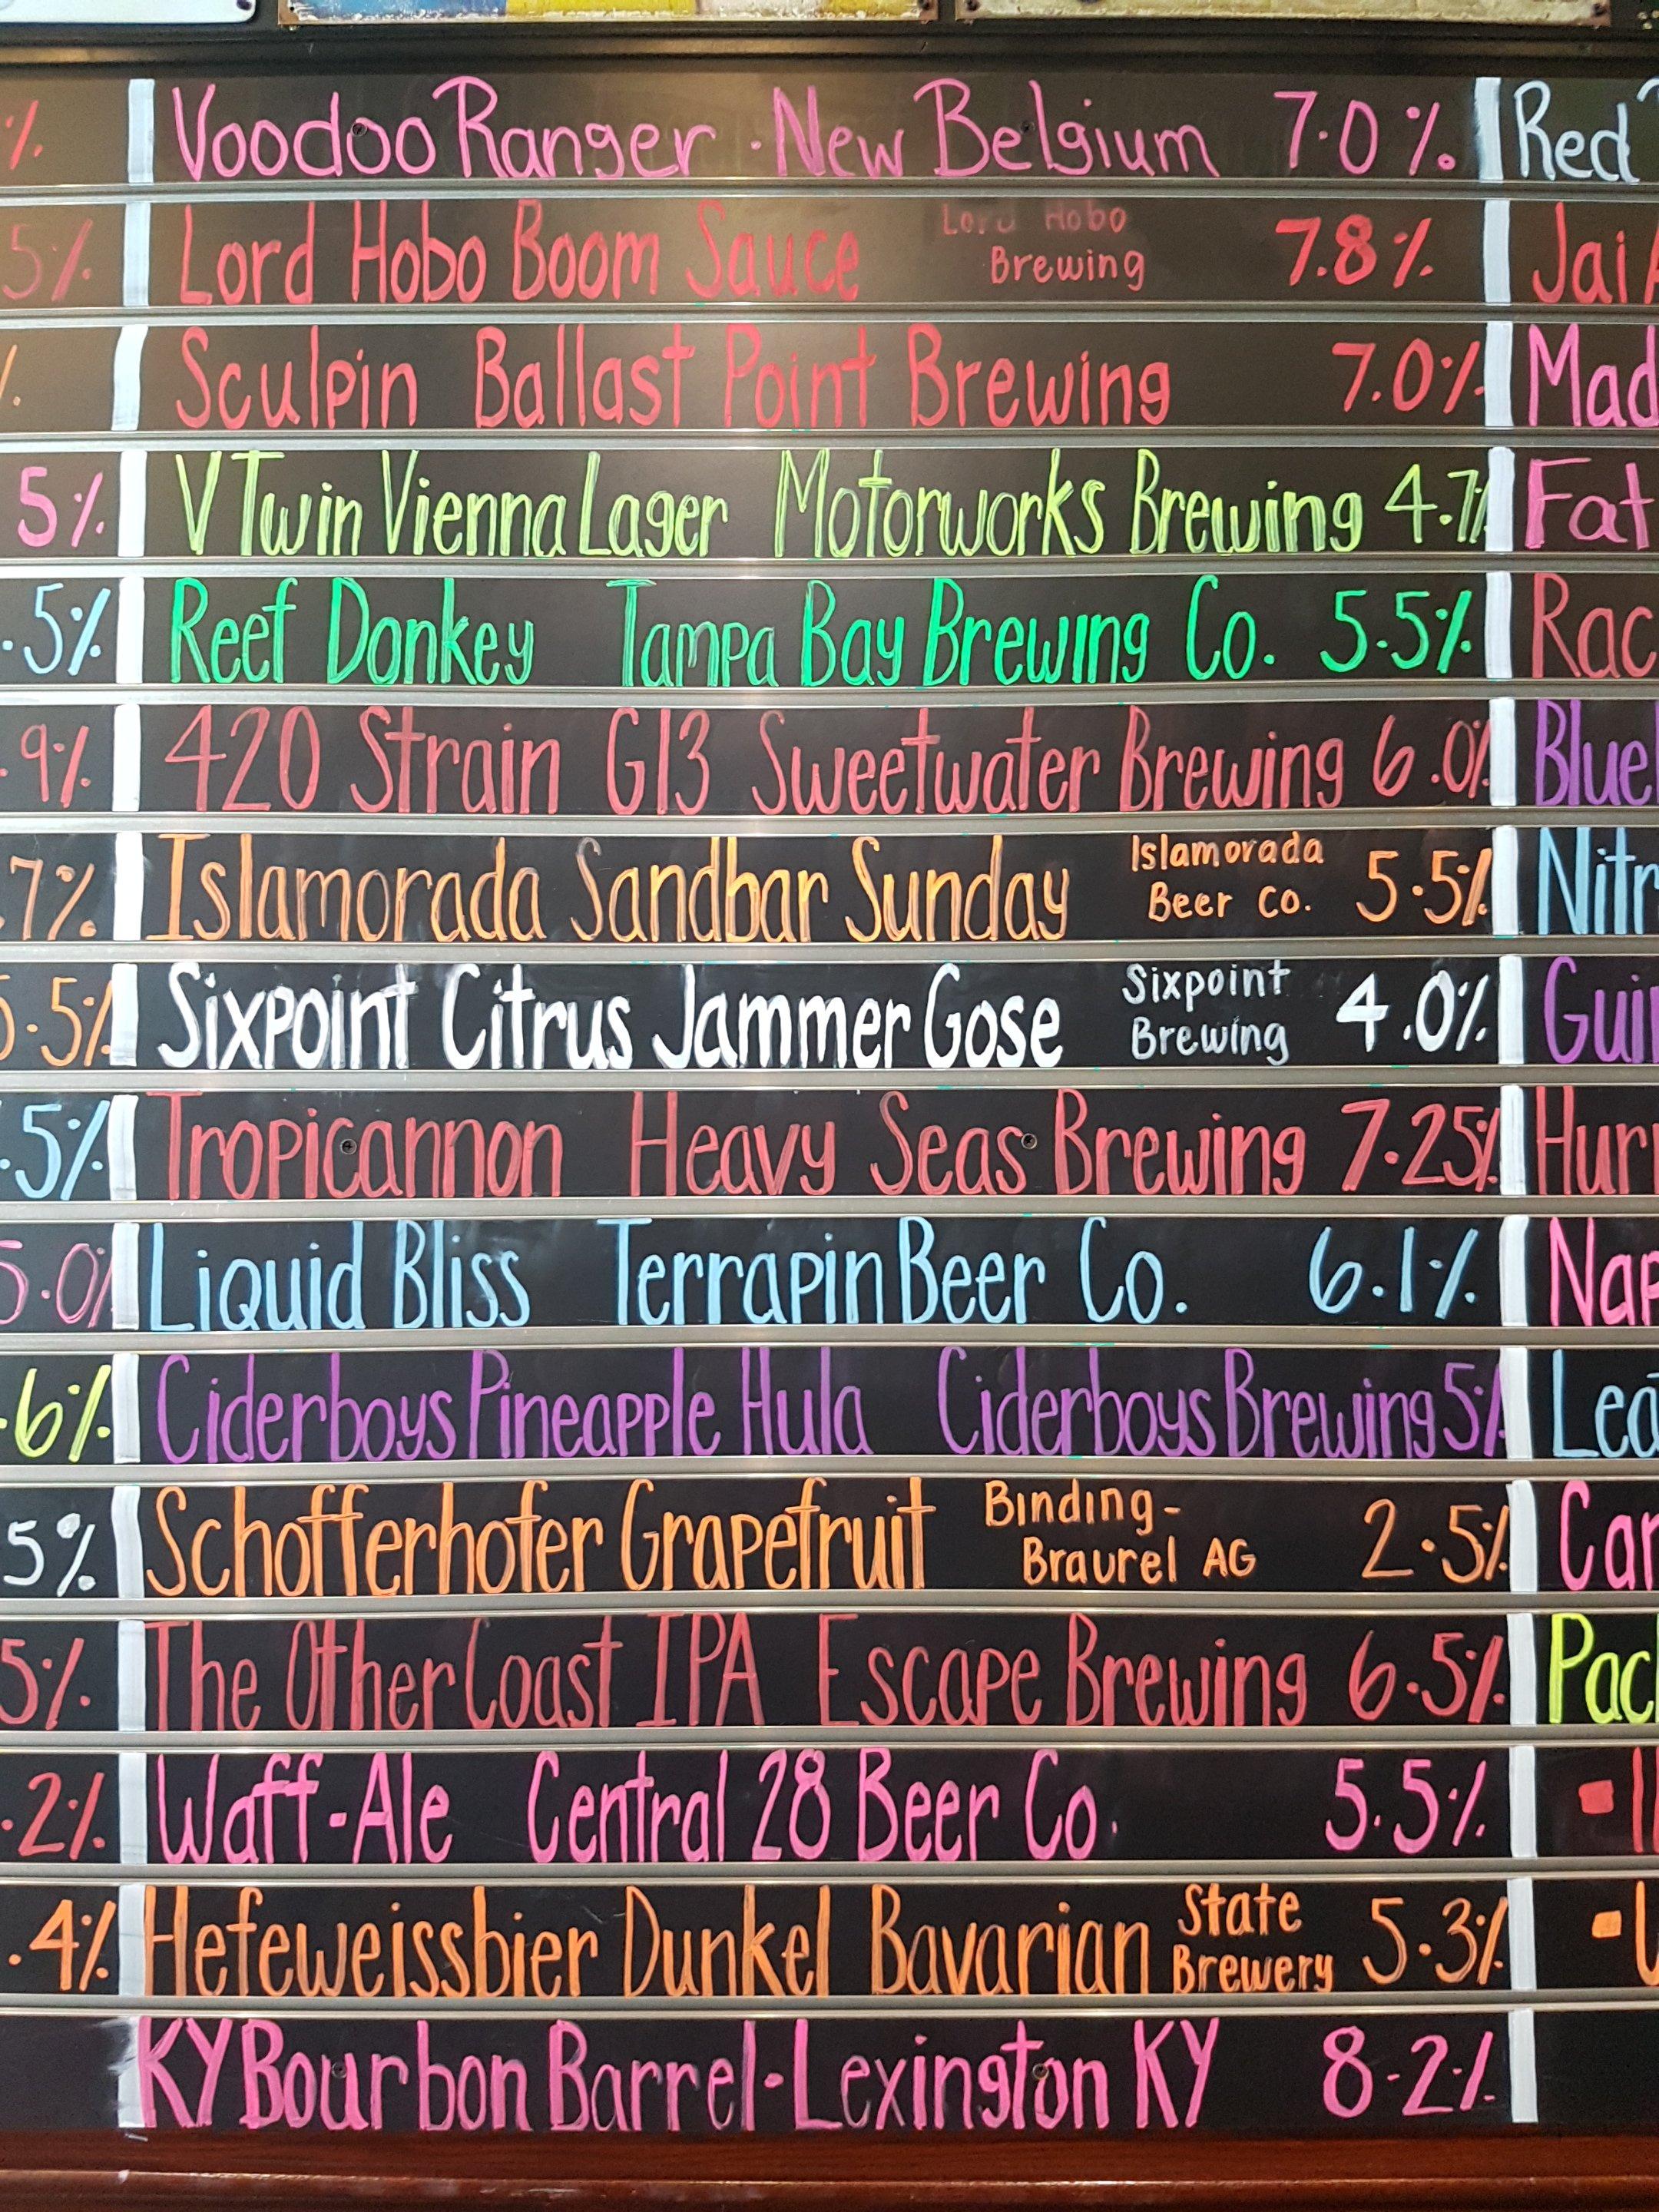 %. Voodoo Ranger · New Belgium 7.0% Red
5% Lord Hobo Boom Sauce Lord Hobo Brewing 7.8% Jai A
%. Sculpin Ballast Point Brewing 7.0% Mad
5% V Twin Vienna Lager Motorworks Brewing 4.7% Fat
.5% Reef Donkey Tampa Bay Brewing Co. 5.5% Rac
.9% 420 Strain G13 Sweetwater Brewing 6.0% Blue
.7% Islamorada Sandbar Sunday Islamorada Beer Co. 5.5% Nitr
5.5% Sixpoint Citrus Jammer Gose Sixpoint Brewing 4.0% Guin
.5% Tropicannon Heavy Seas Brewing 7.25% Hurr
5.0% Liquid Bliss Terrapin Beer Co. 6.1% Nap
.6% Ciderboys Pineapple Hula Ciderboys Brewing 5% Lea
5% Schofferhofer Grapefruit Binding-Braurel AG 2.5% Car
5% The Other Coast IPA Escape Brewing 6.5% Pac
.2% Waff-Ale Central 28 Beer Co. 5.5%
.4% Hefeweissbier Dunkel Bavarian State Brewery 5.3%
KY Bourbon Barrel · Lexington KY 8.2%